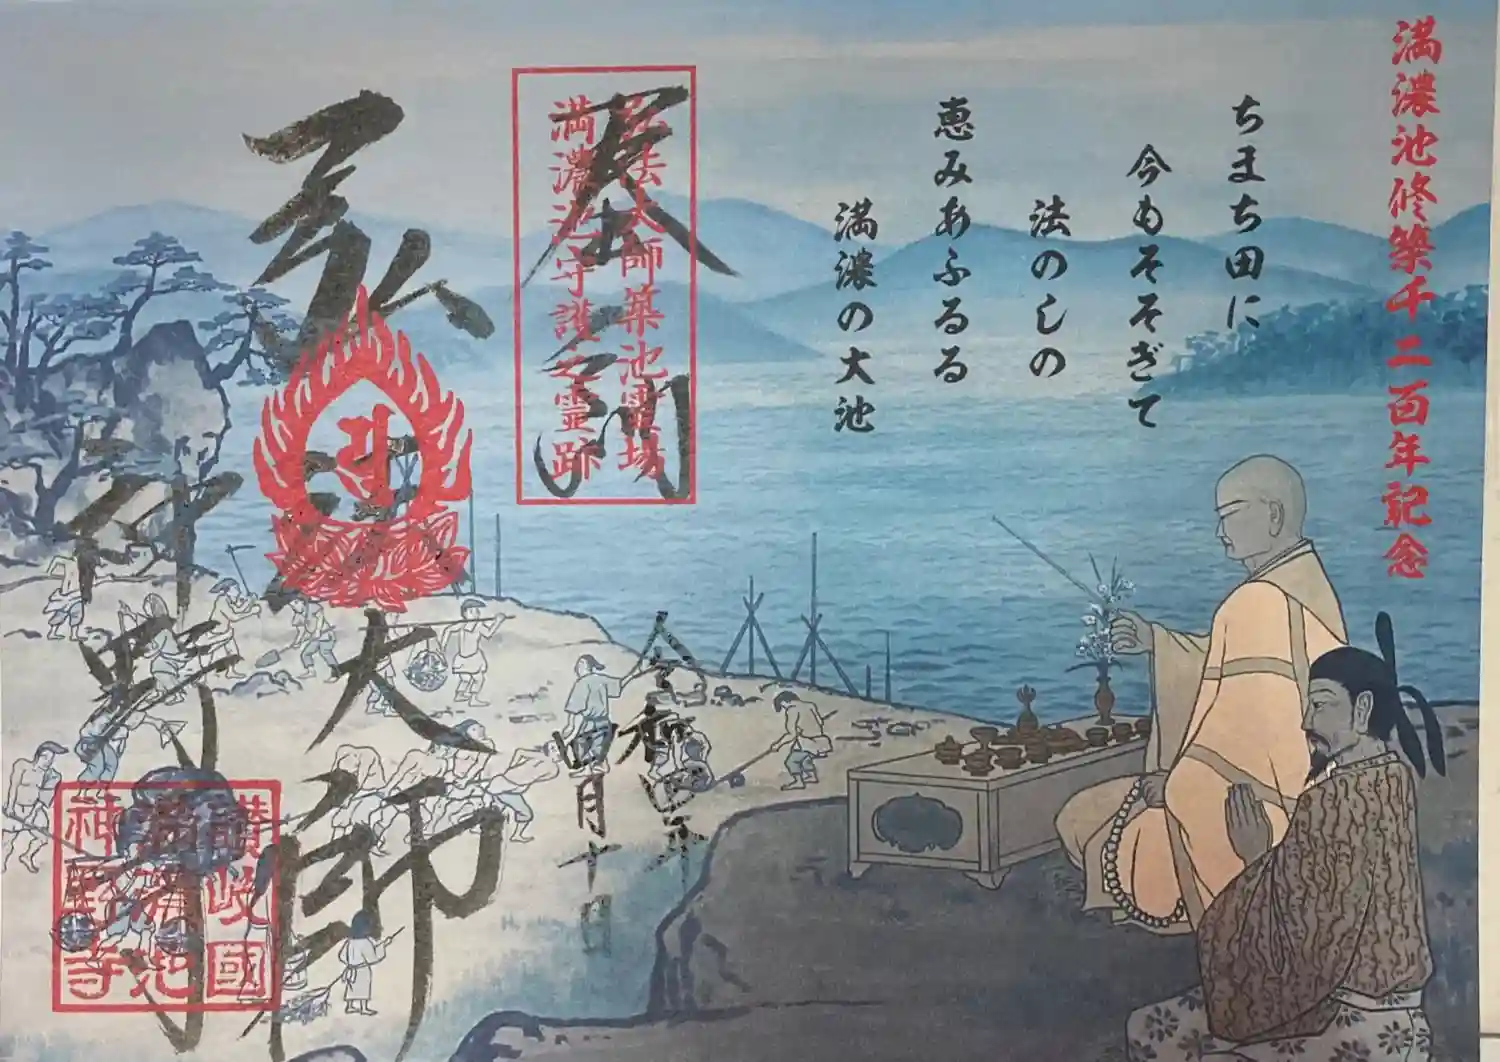 満濃池修築千二百年記念
ちまち田に
今もそそぎて
法のしの
恵みあふるる
満濃の大池
弘法大師築池霊場
満濃池守護之霊跡
奉拝
令和四年
四月十日
弘法大師
神野寺
讃岐國
満濃池
神野寺